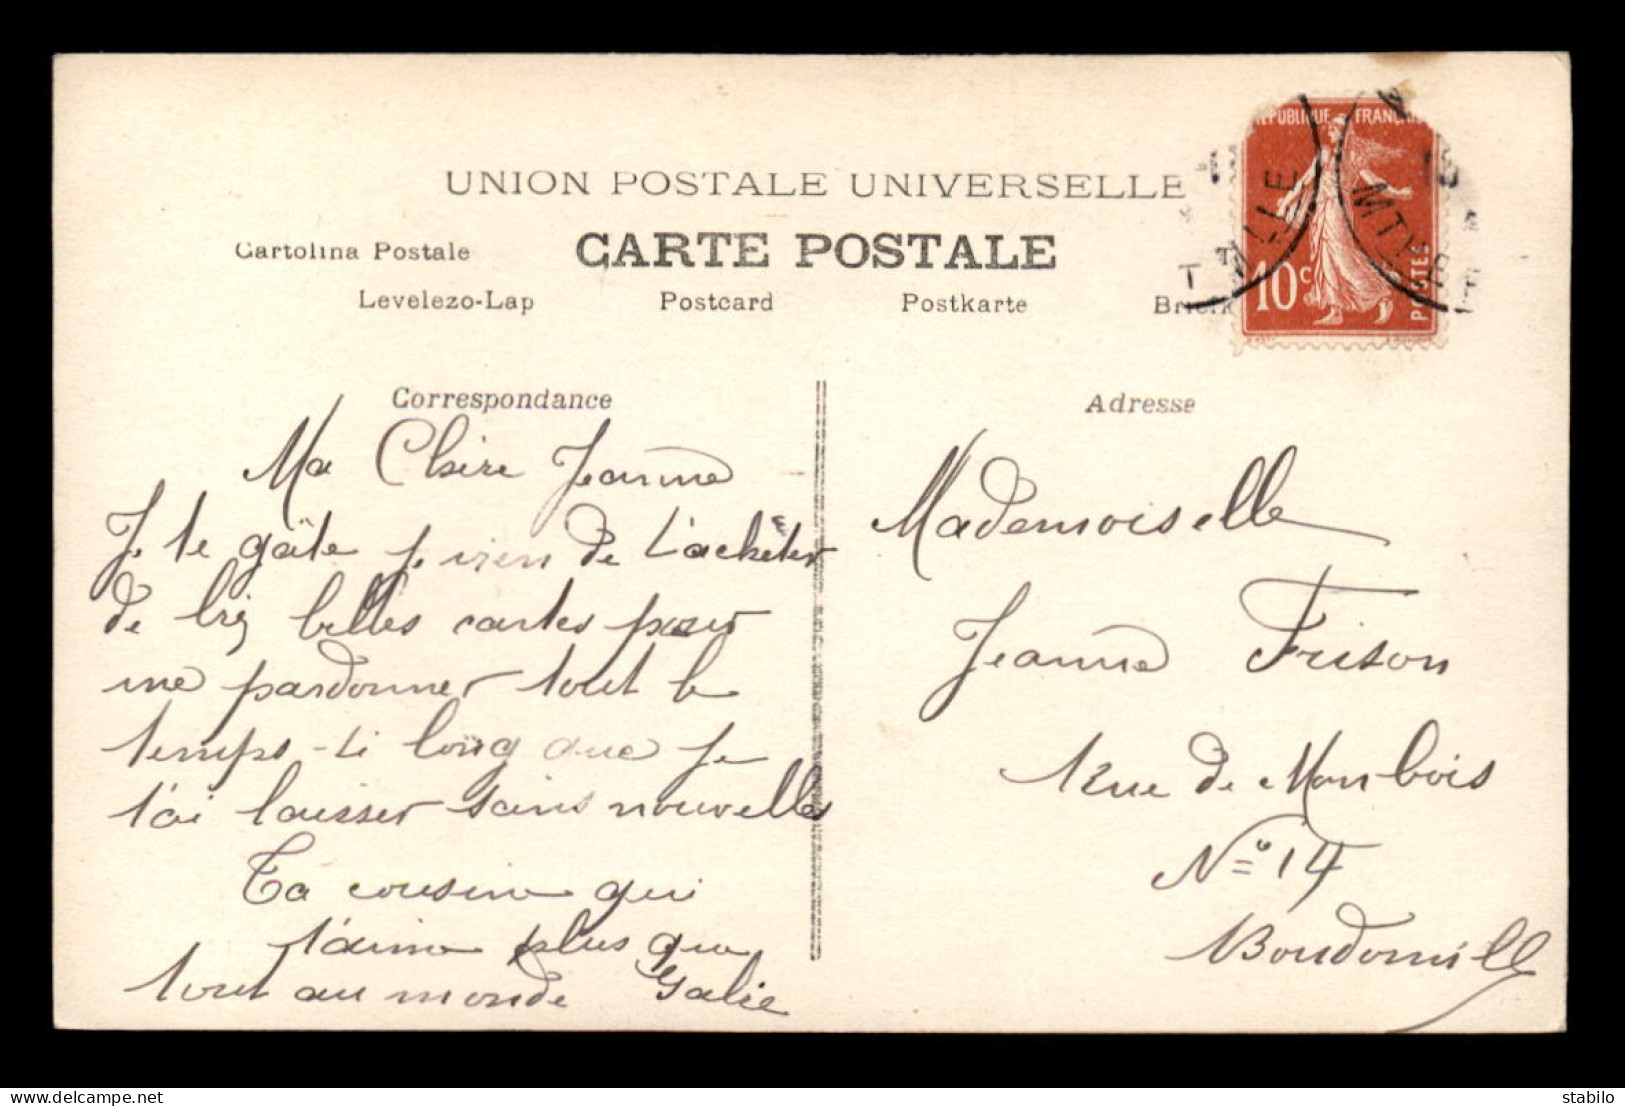 UNION POSTALE UNIVERSELLE
Cartolina Postale
CARTE POSTALE
Levelezo-Lap
Postcard
Postkarte
REPUBLIQUE FRANÇAISE
10c
POSTES
Correspondance
Adresse
Ma Chère Jeanne
Je te gâte je vien de t'acheter
de bien belles cartes pour
me pardonner tout le
temps si long que je
t'ai laisser sans nouvelles
Ta cousine qui
t'aime plus que
tout au monde Galie
Mademoiselle
Jeanne Frison
Rue de Monbois
No 14
Boudonville
delcampe.net
stabilo